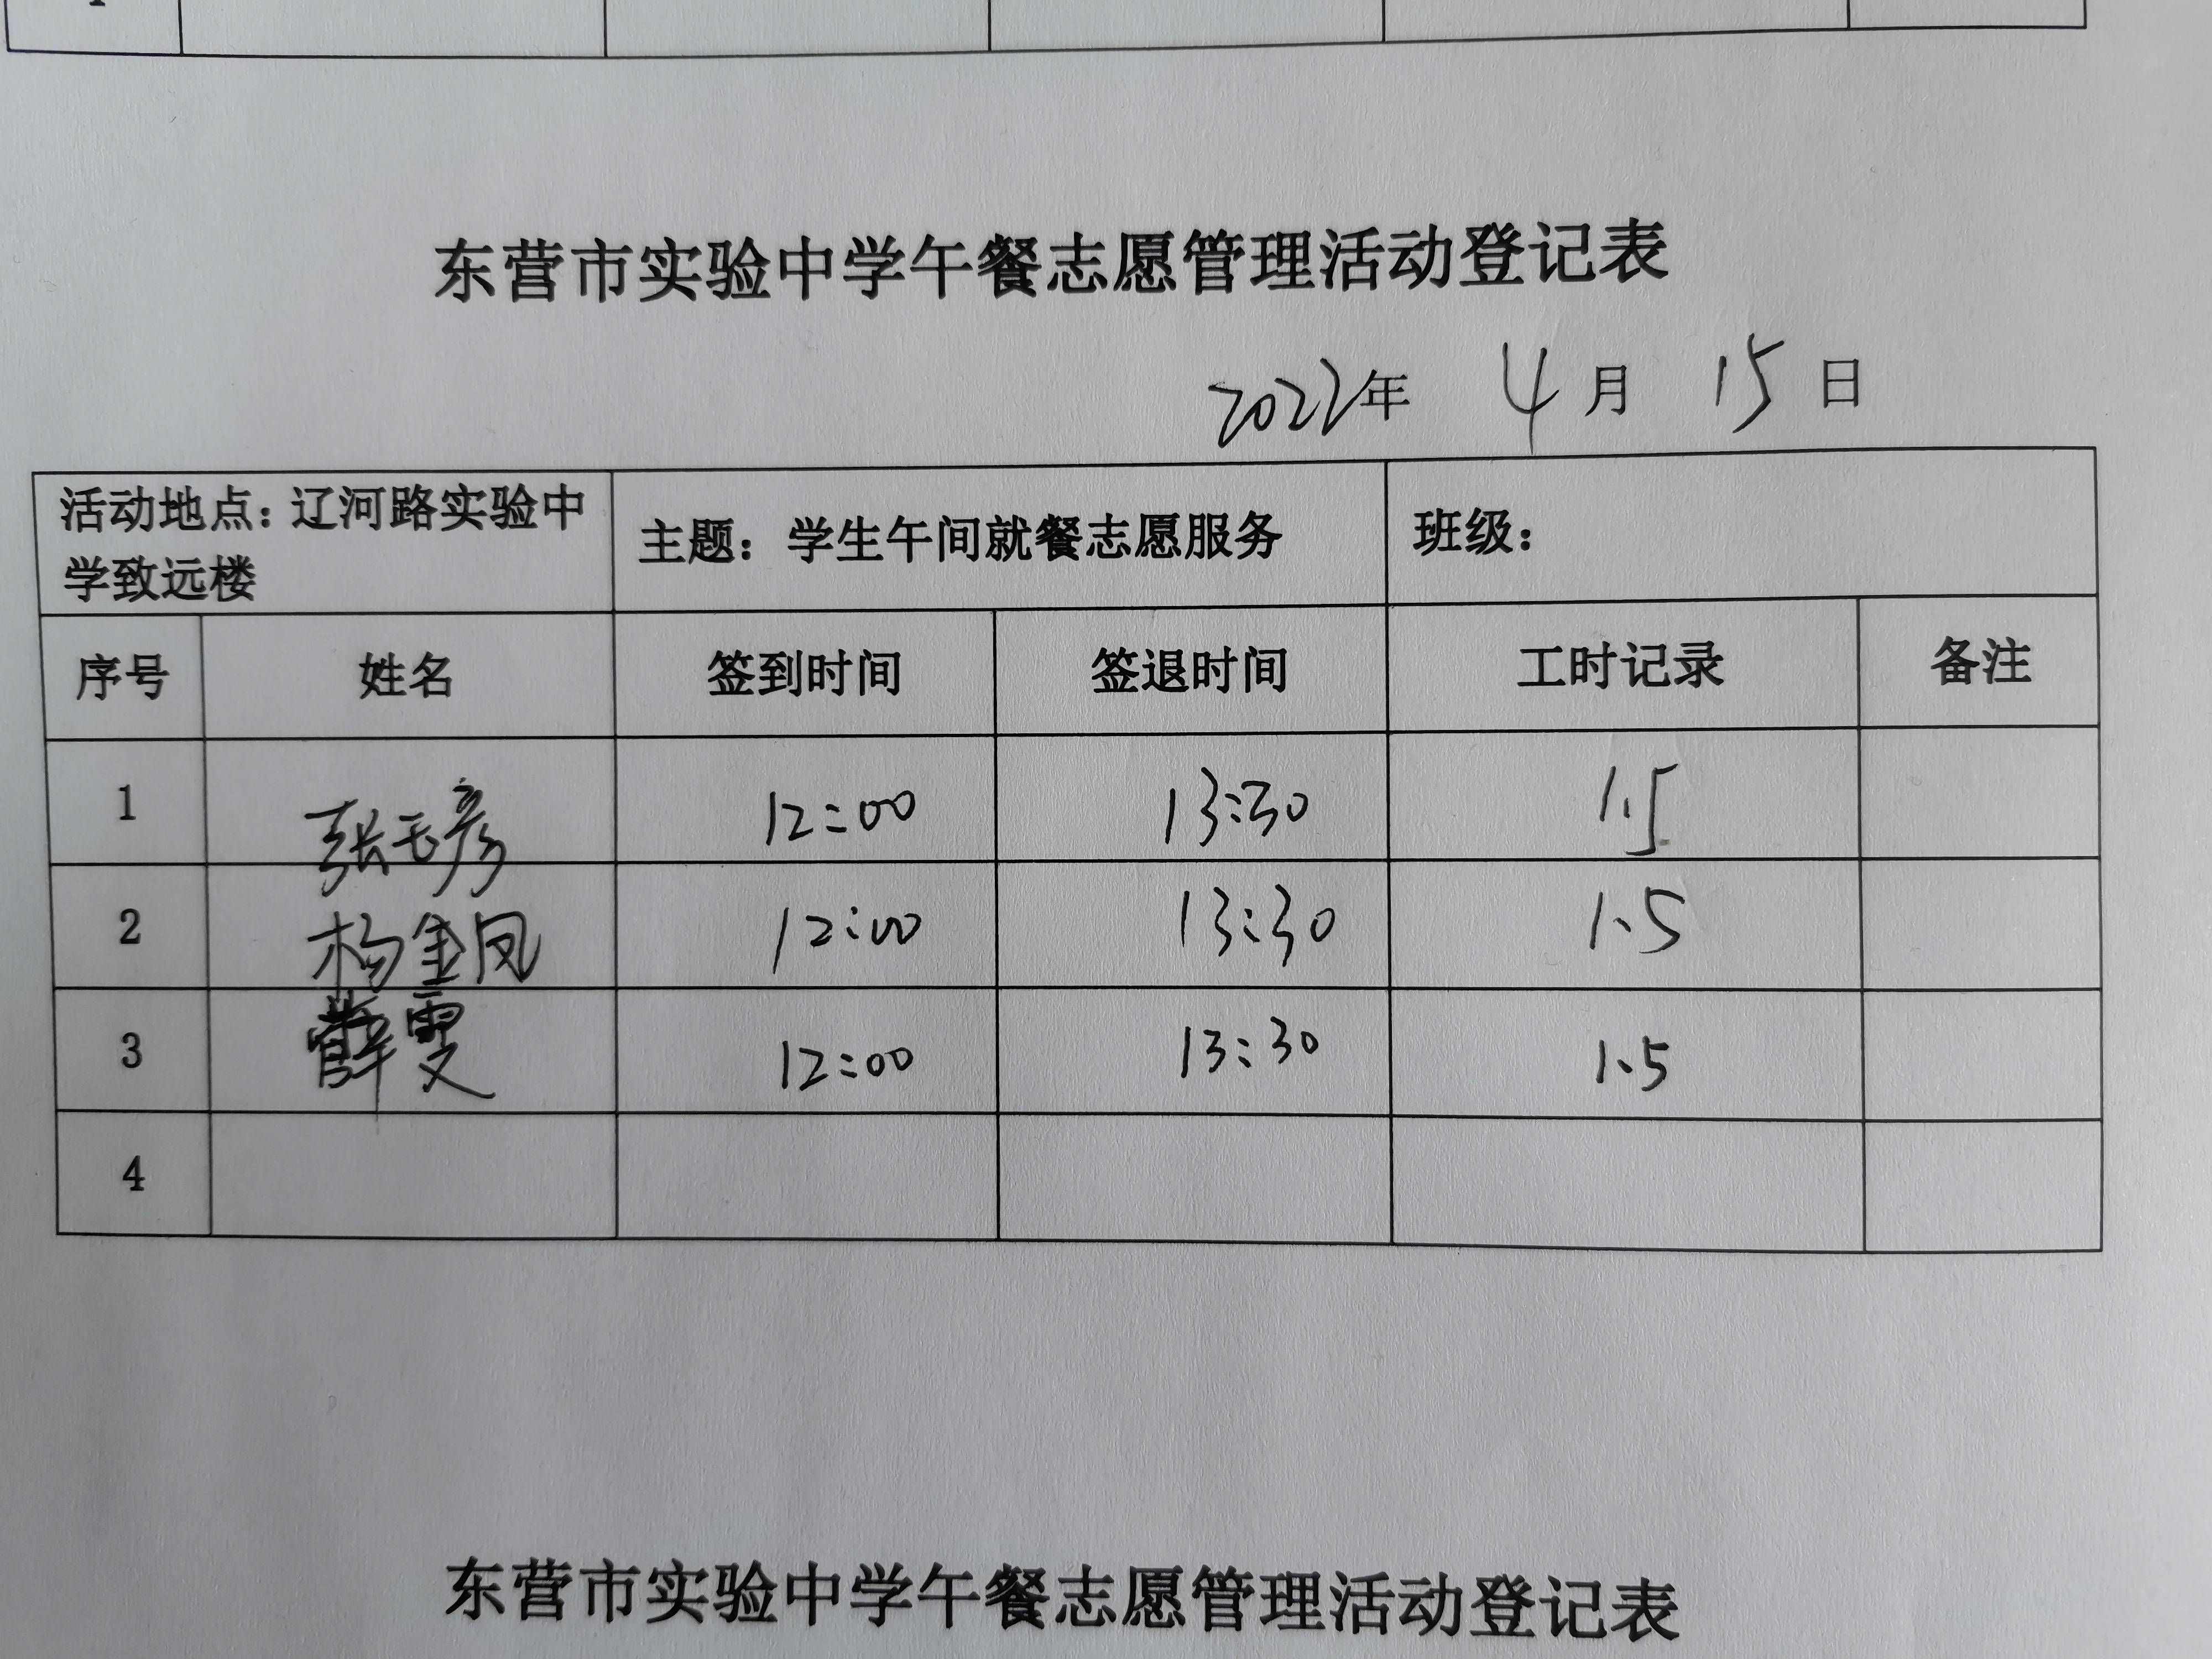 东营市实验中学午餐志愿管理活动登记表
2022年 4月 15日
活动地点：辽河路实验中
学致远楼
主题：学生午间就餐志愿服务
班级：
序号 姓名 签到时间 签退时间 工时记录 备注
1 张玉彦 12:00 13:30 1.5
2 杨金凤 12:00 13:30 1.5
3 薛雯 12:00 13:30 1.5
4
东营市实验中学午餐志愿管理活动登记表